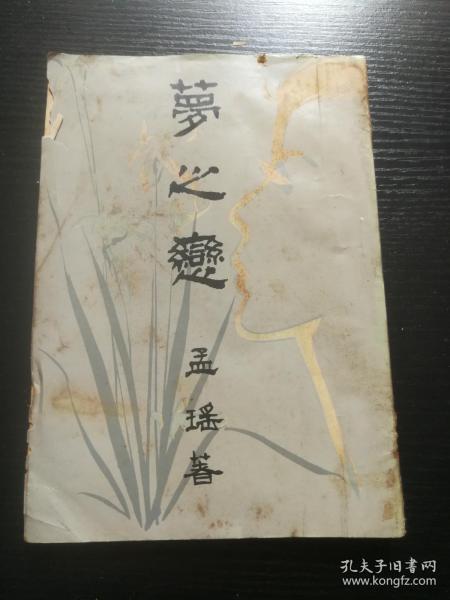 夢之戀
孟瑤著
孔夫子旧书网
www.kongfz.com